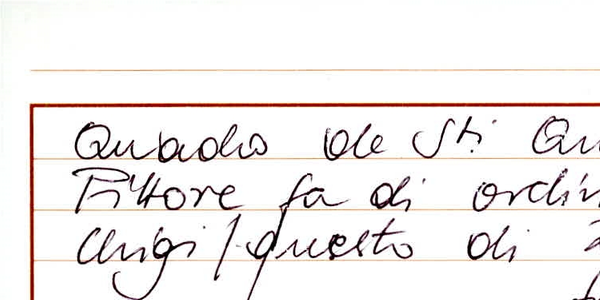 Quadro de Sti Qu
Pittore fa di ordin
Chigi / questo di